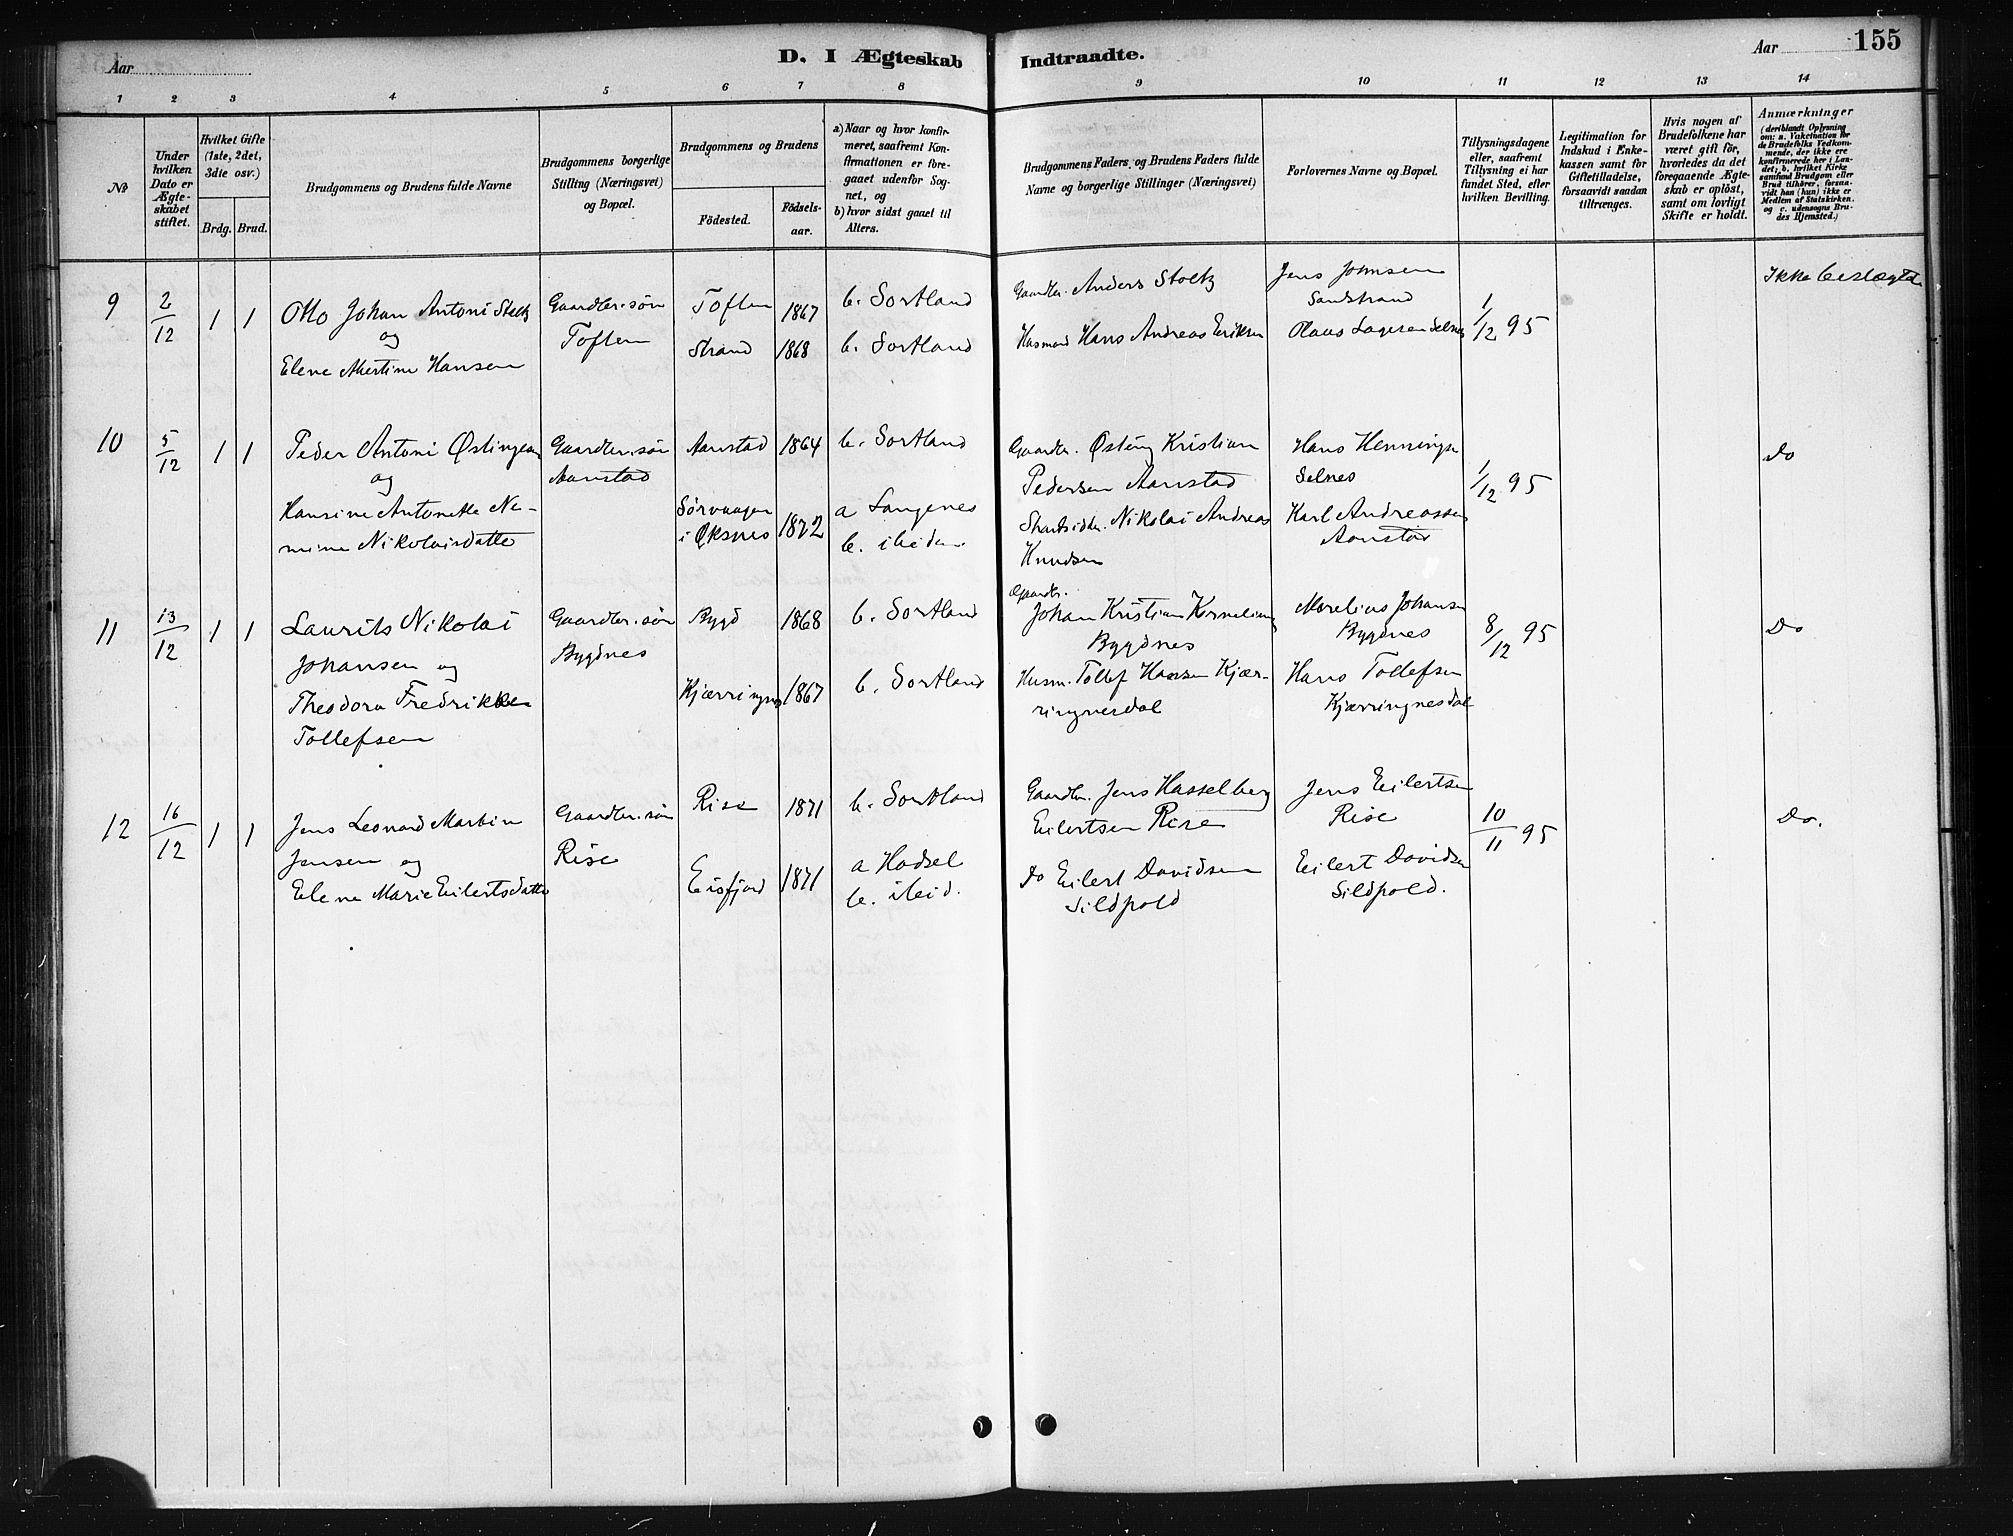 D. I Ægteskab Indtraadte.
155
Aar
Aar
1 2 3 4 5 6 7 8 9 10 11 12 13 14
No
Under hvilken Dato er Ægteskabet stiftet.
Hvilket Gifte (1ste, 2det, 3die osv.)
Brdg. Brud.
Brudgommens og Brudens fulde Navne
Brudgommens borgerlige Stilling (Næringsvei) og Bopæl.
Brudgommens og Brudens
Födested.
Födsels-aar.
a) Naar og hvor konfirmeret, saafremt Konfirmationen er foregaaet udenfor Sognet, og
b) hvor sidst gaaet til Alters.
Brudgommens Faders og Brudens Faders fulde Navne og borgerlige Stillinger (Næringsvei)
Forlovernes Navne og Bopæl.
Tillysningsdagene eller, saafremt Tillysning ei har fundet Sted, efter hvilken Bevilling.
Legitimation for Indskud i Enkekassen samt for Giftetilladelse, forsaavidt saadan tiltrænges.
Hvis nogen af Brudefolkene har været gift för, hvorledes da det foregaaende Ægteskab er oplöst, samt om lovligt Skifte er holdt.
Anmærkninger
(deriblandt Oplysning om: a. Vakcination for de Brudefolks Vedkommende, der ikke ere konfirmerede her i Landet; b. hvilket Kirkesamfund Brudgom eller Brud tilhörer, forsaavidt han (hun) ikke er Medlem af Statskirken. og c. udensogns Brudes Hjemsted.)
9 2/12 1 1 Otto Johan Antoni Stoltz
og
Elene Albertine Hansen
Gaardbr.søn
Toften
Toften 1867 b. Sortland
Strand 1868 b. Sortland
Gaardbr. Anders Stoltz
Husmand Hans Andreas Eriksen
Jens Johnsen
Sandstrand
Olaus Lagesen Selnes
1/12 95
Ikke beslægtede
10 5/12 1 1 Peder Antoni Østingsen
og
Hansine Antonette Ne-
mine Nikolaisdatter
Gaardbr.søn
Aanstad
Aanstad 1864 b. Sortland
Sørvaagen
i Øksnes 1872 a Langenes
b. ibidem.
Gaardbr. Østing Kristian
Pedersen Aanstad
Strandsidder. Nikolai Andreas
Knudsen
Hans Hennings
Selnes
Karl Andreassen
Aanstad
1/12 95
Do
11 13/12 1 1 Laurits Nikolai
Johansen og
Theodora Fredrikke
Tollefsen
Gaardbr.søn
Bygdnes
Bygd 1868 b. Sortland
Kjærringnes 1867 b. Sortland
Gaardbr.
Johan Kristian Kornelius
Bygdnes
Husm. Tollef Hansen Kjær-
ringnesdal
Morelius Johansen
Bygdnes
Hans Tollefsen
Kjærringnesdal
8/12 95
Do
12 16/12 1 1 Jens Leonard Martin
Jensen og
Elene Marie Eilertsdatter
Gaardbr.søn
Rise
Rise 1871 b. Sortland
Eisfjord 1871 a Hadsel
b. ibid.
Gaardbr. Jens Hasselberg
Eilertsen Rise
Do Eilert Davidsen
Sildpold
Jens Eilertsen
Rise
Eilert Davidsen
Sildpold.
10/11 95
Do.